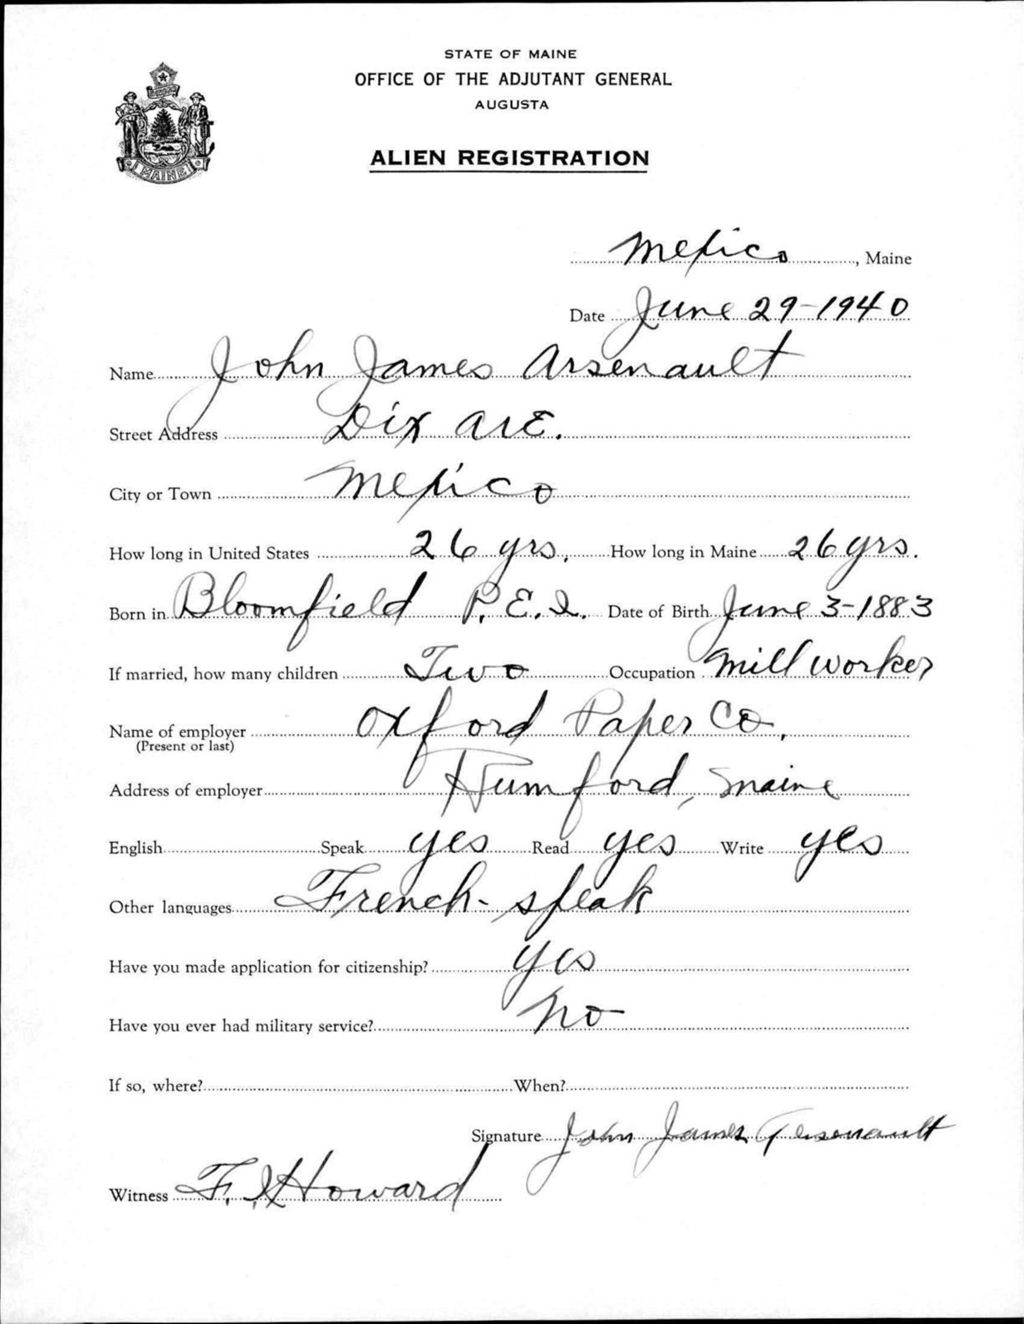 STATE OF MAINE
OFFICE OF THE ADJUTANT GENERAL
AUGUSTA
ALIEN REGISTRATION
MAINE
Mexico, Maine
Date June 29-1940
Name John James Arsenault
Street Address Dix Ave.
City or Town Mexico
How long in United States 26 yrs. How long in Maine 26 yrs.
Born in Bloomfield P.E.I. Date of Birth June 3-1883
If married, how many children Two Occupation Mill worker
Name of employer Oxford Paper Co.
(Present or last)
Address of employer Rumford, Maine
English Speak yes Read yes Write yes
Other languages French - speak
Have you made application for citizenship? yes
Have you ever had military service? No
If so, where? When?
Signature John James Arsenault
Witness F. Howard